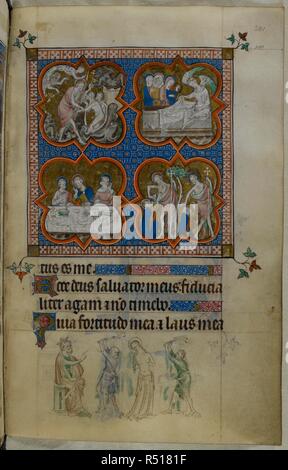 tus es me.
Ecce deus saluator meus fiducia
liter agam et no timebo.
Quia fortitudo mea et laus mea
alamy
Image ID: R5181F
www.alamy.com